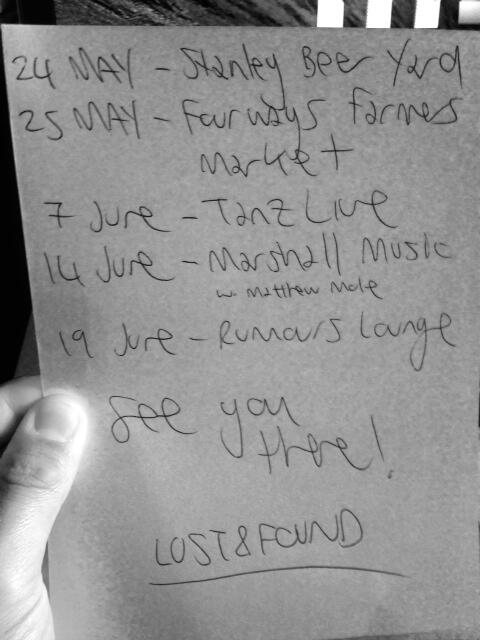 24 MAY - Stanley Beer Yard
25 MAY - Fourways Farmers
Market
7 June - Tanz Live
14 June - Marshall Music
w. Matthew Mole
19 June - Rumours Lounge
See you
there!
LOST&FOUND